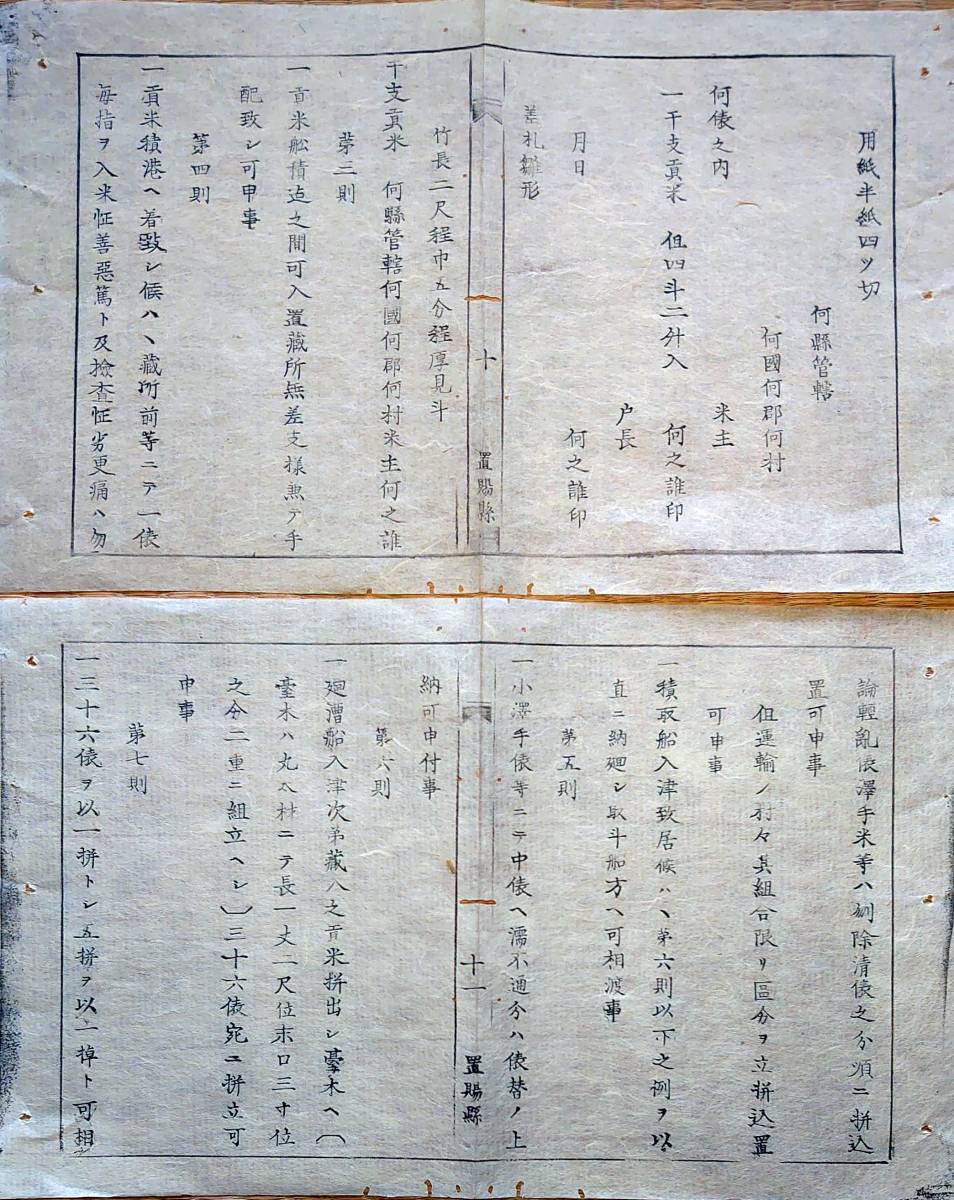 用紙半紙四ツ切
何縣管轄
何國何郡何村
何俵之内　米主
一干支貢米　但四斗二升入　何之誰印
戸長
月日　何之誰印
差札雛形
十
置賜縣
竹長二尺程巾五分程厚見斗
干支貢米　何縣管轄何國何郡何村米主何之誰
第三則
一貢米舩積迠之間可入置藏所無差支様兼テ手
配致シ可申事
第四則
一貢米積港ヘ着致シ候ハヽ藏所前等ニテ一俵
毎指ヲ入米怔善惡篤ト及撿査怔劣更痛ハ勿
論輕亂俵澤手米等ハ刎除清俵之分順ニ拼込
置可申事
但運輸ノ村々其組合限リ區分ヲ立拼込置
可申事
一積取船入津致居候ハヽ第六則以下之例ヲ以
直ニ納廻シ取斗船方ヘ可相渡事
第五則
一小澤手俵等ニテ中俵ヘ濡不通分ハ俵替ノ上
十一
置賜縣
納可申付事
第六則
一廻漕船入津次第藏入之貢米拼出シ臺木ヘ〔
臺木ハ丸太材ニテ長一丈二尺位末口三寸位
之分二重ニ組立ヘシ〕三十六俵宛ニ拼立可
申事
第七則
一三十六俵ヲ以一拼トシ五拼ヲ以一掉ト可相